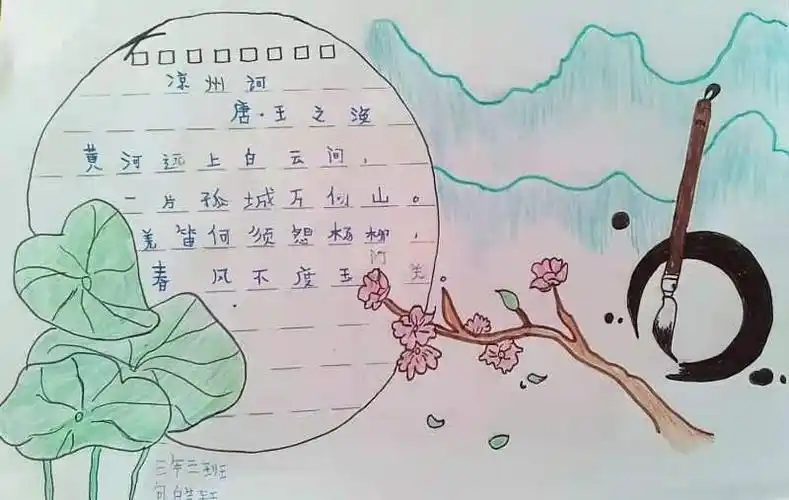 凉州词
唐·王之涣
黄河远上白云间，
一片孤城万仞山。
羌笛何须怨杨柳，
春风不度玉门关。
三年三班